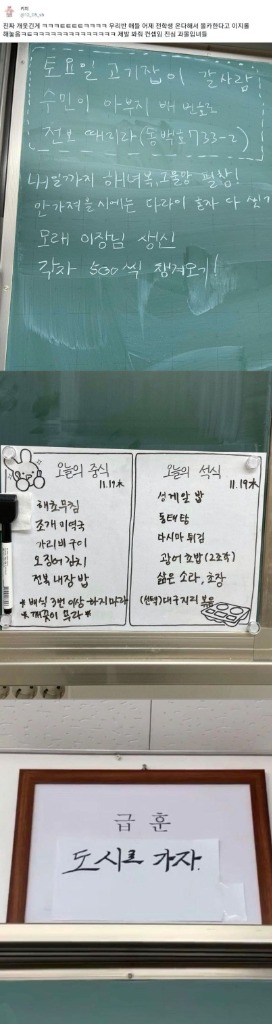 진짜 개웃긴게 ㅋㅋㅋㅋㅌㅌㅌㅌㅋㅋㅋㅋ 우리반 애들 어제 전학생 온다해서 몰카한다고 이지롤
해놓음ㅋㅋㅋㅋㅋㅋㅋㅋㅋㅋㅋㅋㅋㅋㅋ 제발 봐줘 컨셉임 진심 과몰입녀들
토요일 고기잡이 갈사람
수민이 아부지 배 빈으로
전보 때리라(동박호733-2)
내일까지 해녀복,고물망 필참!
안가져올시에는 다라이 혼자 다 씻기
모래 이장님 생신
각자 500씩 챙겨오기!
오늘의 중식
11.19木
해초무침
조개미역국
가리비구이
오징어김치
전복내장밥
*배식 3번 이상 하지마라
*깨끗이 무라
오늘의 석식
11.19木
성게알밥
동태탕
다시마튀김
광어초밥(2조각)
삶은 소라, 초장
(선택)대구지리 볶음
급훈
도시로 가자.